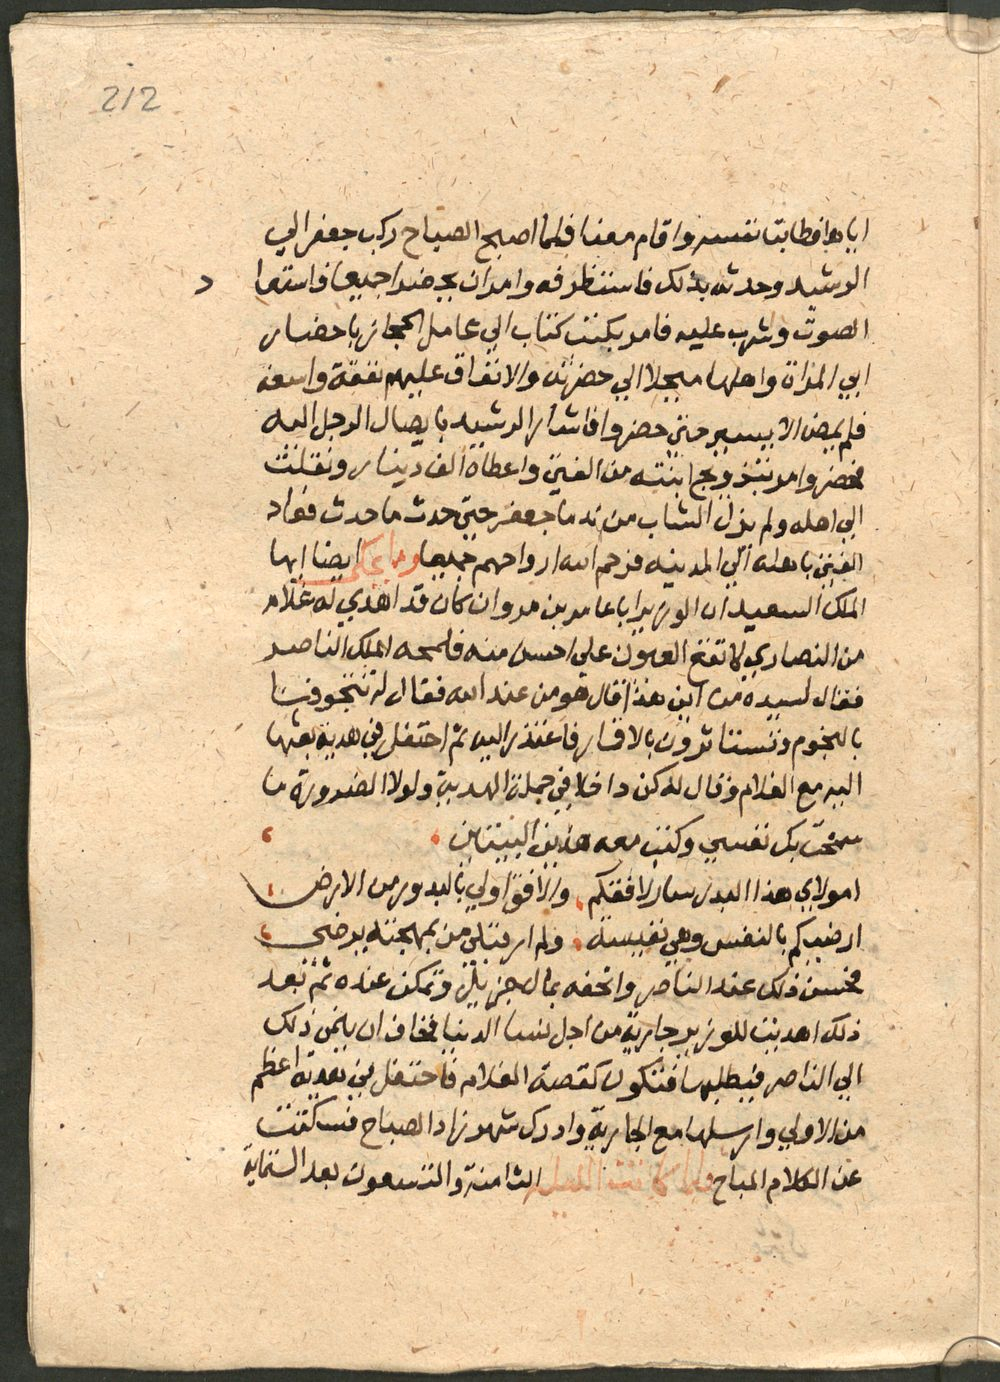 212
اياها فطابت نفسه واقام معنا فلما اصبح الصباح ركب جعفر الي
الرشيد وحدثه بذلك فاستظرفه وامر ان يحضرا جميعا فاستعا د
الصوت وشرب عليه فامر بكتب كتاب الي عامل الحجاز باحضار
ابي المراة واهلها مبجلا الي حضرته والانفاق عليهم نفقة واسعه
فلم يمض الا يسير حتي حضروا فاشار الرشيد بايصال الرجل اليه
فحضر وامر بتزويج ابنته من الفتي واعطاه الف دينار ونقلت
الي اهله ولم يزل الشاب من ندما جعفر حتي حدث ما حدث فعاد
الفتي باهله الي المدينه فرحم الله ارواحهم جميعا ومما يحكي ايضا ايها
الملك السعيد ان الوزير ابا عامر بن مروان كان قد اهدي له غلام
من النصاري لا تقع العيون علي احسن منه فلمحه الملك الناصر
فقال لسيده من اين هذا فقال هو من عند الله فقال له تتحوفنا
بالنجوم وتستاثرون بالاقمار فاعتذر اليه ثم احتفل في هدية بعثها
اليه مع الغلام وقال له كن داخلا في جملة الهدية ولولا الضرورة ما
سمحت بك نفسي وكتب معه هذين البيتين
امولاي هذا البدر سار لافقكم والافق اولي بالبدور من الارض
ارضيكم بالنفس وهي نفيسة ولم ار قبلي من بمهجته يرضي
فحسن ذلك عند الناصر واتحفه بمال جزيل وتمكن عنده ثم بعد
ذلك اهديت للوزير جارية من اجل نسا الدنيا فخاف ان ينمي ذلك
الي الناصر فيطلبها فتكون كقصة الغلام فاحتفل في هدية اعظم
من الاولي وارسلها مع الجارية وادرك شهرزاد الصباح فسكتت
عن الكلام المباح فلما كانت الليله الثامنة والتسعون بعد الستماية